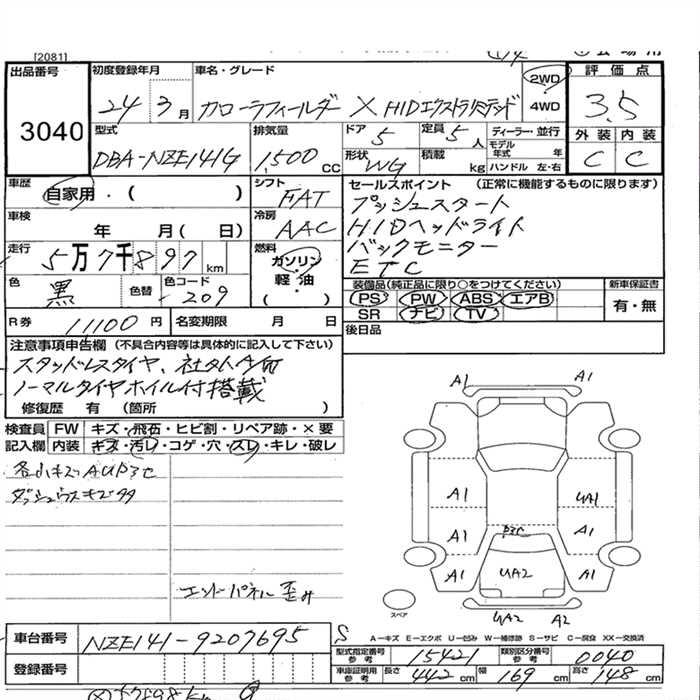 [2081]
出品番号 初度登録年月 車名・グレード 2WD 評価点
3040 24 3月 カローラフィールダー X HIDエクストラリミテッド 4WD 3.5
型式 排気量 ドア 5 定員 5人 ディーラー・並行 外装 内装
DBA-NZE141G 1,500cc 形状 WG 積載 kg モデル年式 年 C C
ハンドル 左・右
車歴 自家用・( ) シフト FAT セールスポイント (正常に機能するものに限ります)
車検 年 月( 日) 冷房 AAC プッシュスタート
HIDヘッドライト
走行 5万7千897km 燃料 ガソリン・軽油・( ) バックモニター
ETC
色 黒 色替 色コード 209 装備品(純正品に限り○をつけてください) 新車保証書
PS PW ABS エアB 有・無
R券 11100円 名変期限 月 日 SR ナビ TV
後日品
注意事項申告欄 (不具合内容等は具体的に記入して下さい)
スタッドレスタイヤ、社外A/W付
ノーマルタイヤホイル付搭載
修復歴 有 (箇所 )
検査員 FW キズ・飛石・ヒビ割・リペア跡・×要
記入欄 内装 キズ・汚レ・コゲ・穴・スレ・キレ・破レ
各小キズAUP3C
ダッシュウスキズ
エンドパネル歪み
A1 A1
A1 UA1
A1 P3C A1
A1 UA2 A1
UA2 A2
スペア
A－キズ E－エクボ U－凹み W－補修跡 S－サビ C－腐食 XX－交換済
車台番号 NZE141-9207695 S 型式指定番号 参考 15421 類別区分番号 参考 0040
登録番号 車庫証明用 参考 長さ 442cm 幅 169cm 高さ 148cm